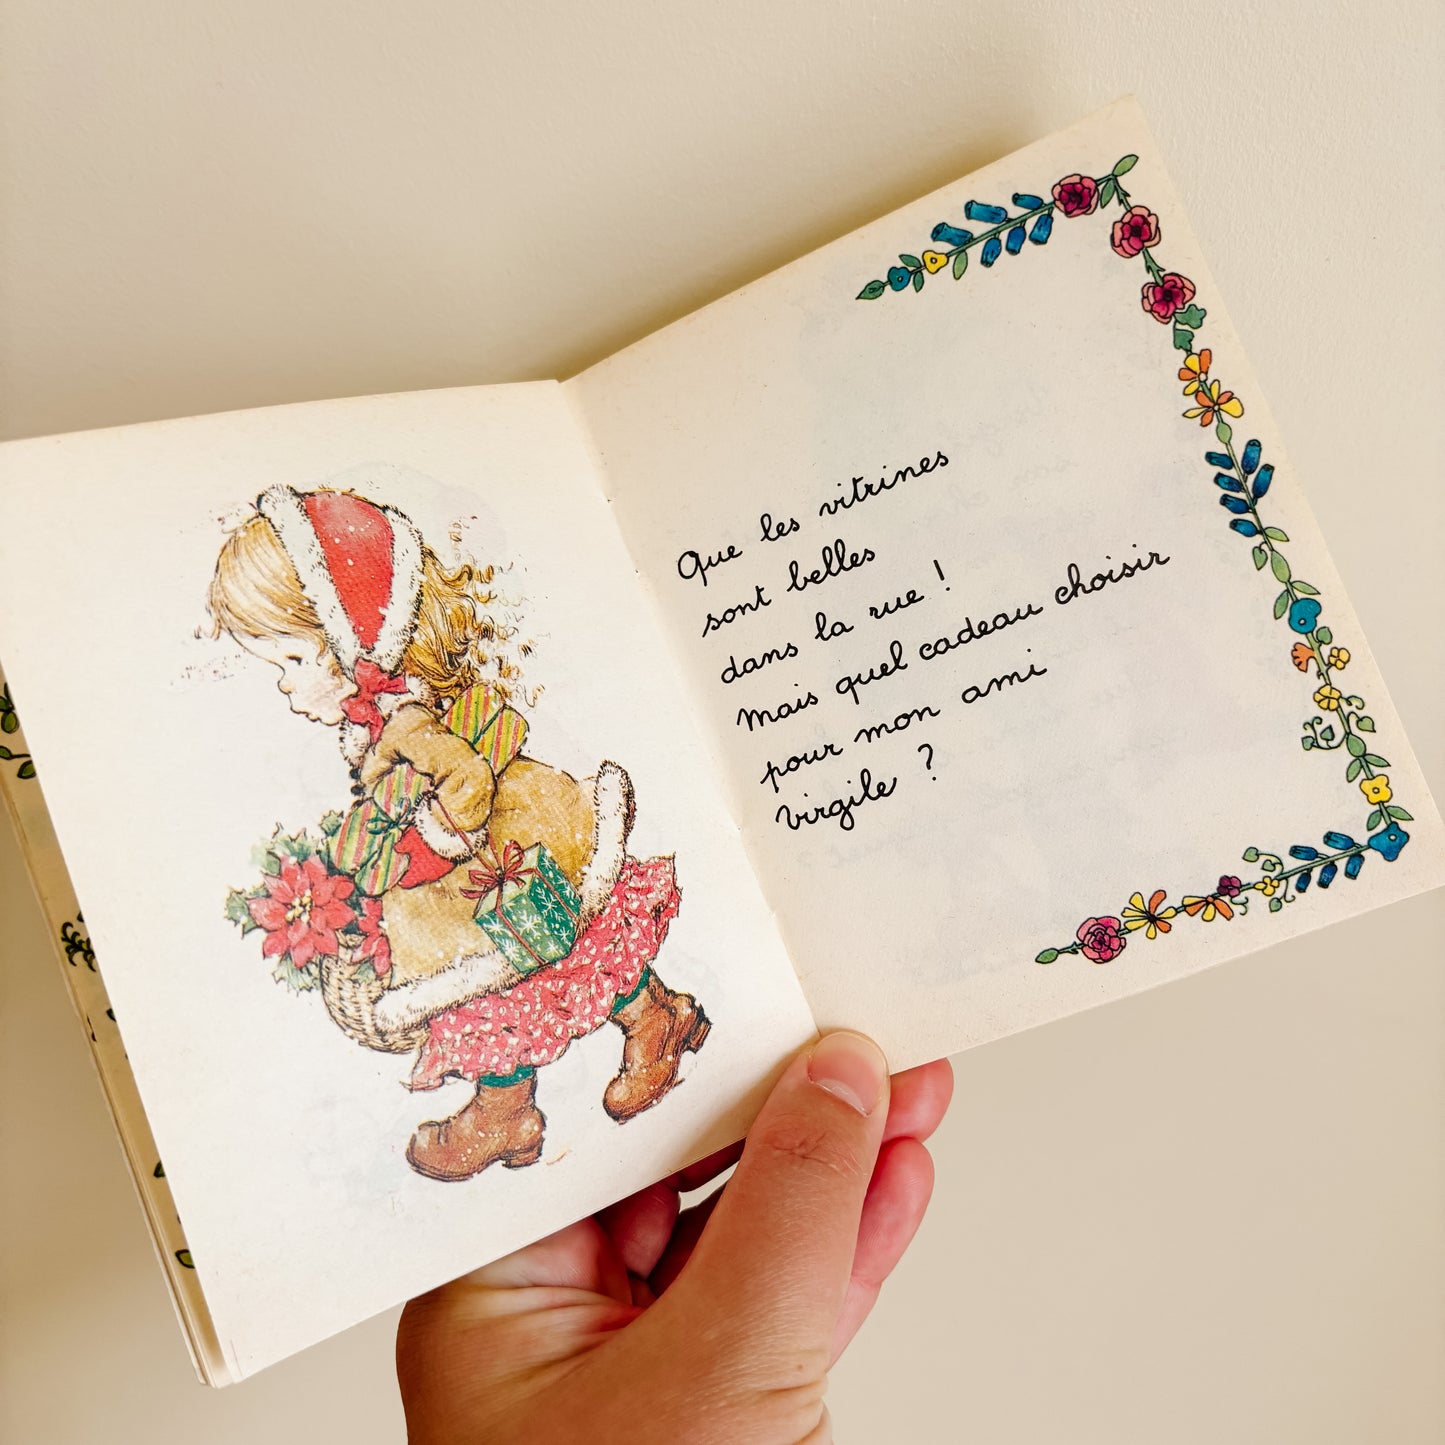 Que les vitrines
sont belles
dans la rue !
Mais quel cadeau choisir
pour mon ami
Virgile ?